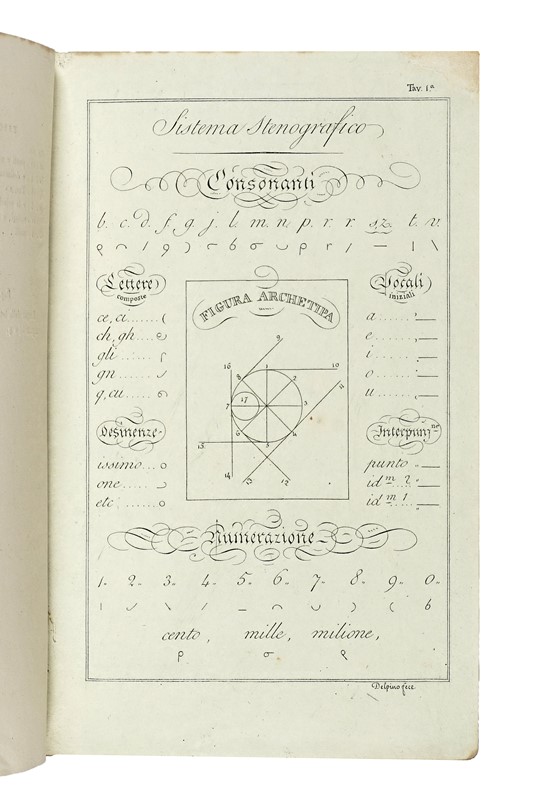 Tav. I.a
Sistema Stenografico
Consonanti
b. c. d. f. g. j. l. m. n. p. r. r. s,z. t. v.
Lettere
composte
ce, ci
ch, gh
gli
gn
q, cu
FIGURA ARCHETIPA
1 2 3 4 5 6 7 8 9 10 11 12 13 14 15 16 17
Vocali
iniziali
a
e
i
o
u
Desinenze
issimo
one
etc
Interpunz.ne
punto
id.m 2
id.m 1
Numerazione
1. 2. 3. 4. 5. 6. 7. 8. 9. 0.
cento, mille, milione,
Delpino fece